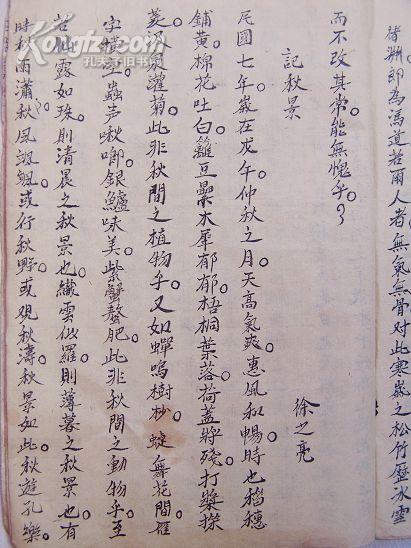 褚渊即為馮道若兩人者無氣無骨对此寒嵗之松竹歷冰雪
而不改其常能無愧乎
記秋景
徐之亮
民國七年嵗在戊午仲秋之月天高氣爽惠風和暢時也稻穗
鋪黃棉花吐白籬豆纍木犀郁郁梧桐葉落荷蓋將殘打槳採
菱汲灌菊此非秋間之植物乎又如蟬鳴樹杪蜨舞花間雁
字橫空蟲声啾唧銀鱸味美紫蟹螯肥此非秋間之動物乎至
若仙露如珠則清晨之秋景也纖雲似羅則薄暮之秋景也有
時秋雨瀟秋風颯颯或行秋野或观秋濤秋景如此秋遊孔樂
孔夫子旧书网